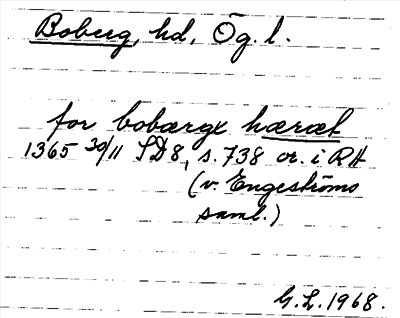 Boberg, hd, Ög. l.
for bobærgx hæræt
1365 30/11 SD8, s. 738 or. i RA
(v. Engeströms
saml.)
G. L. 1968.